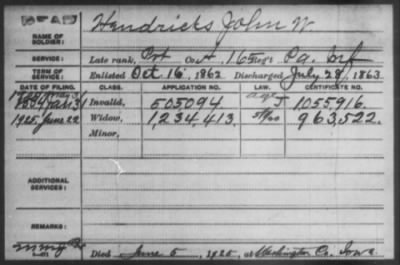 DEAD
NAME OF SOLDIER: Hendricks John W
SERVICE: Late rank, Pvt Co. A, 165 Regt Pa. Inf
TERM OF SERVICE: Enlisted Oct 16, 1862 Discharged July 28, 1863
DATE OF FILING. CLASS. APPLICATION NO. LAW. CERTIFICATE NO.
1884 Jan. 31 Invalid, 505094 J 1055916.
1925, June 22 Widow, 1,234,413. 963,522.
Minor,
ADDITIONAL SERVICES:
REMARKS:
Died June 5, 1925, at Washington Co. Iowa